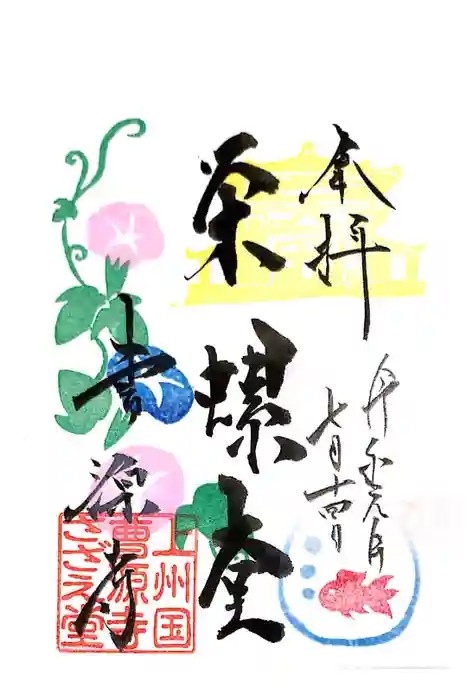 奉拝
令和元年
七月十四日
栄螺堂
曹源寺
上州国
曹源寺
さざえ堂